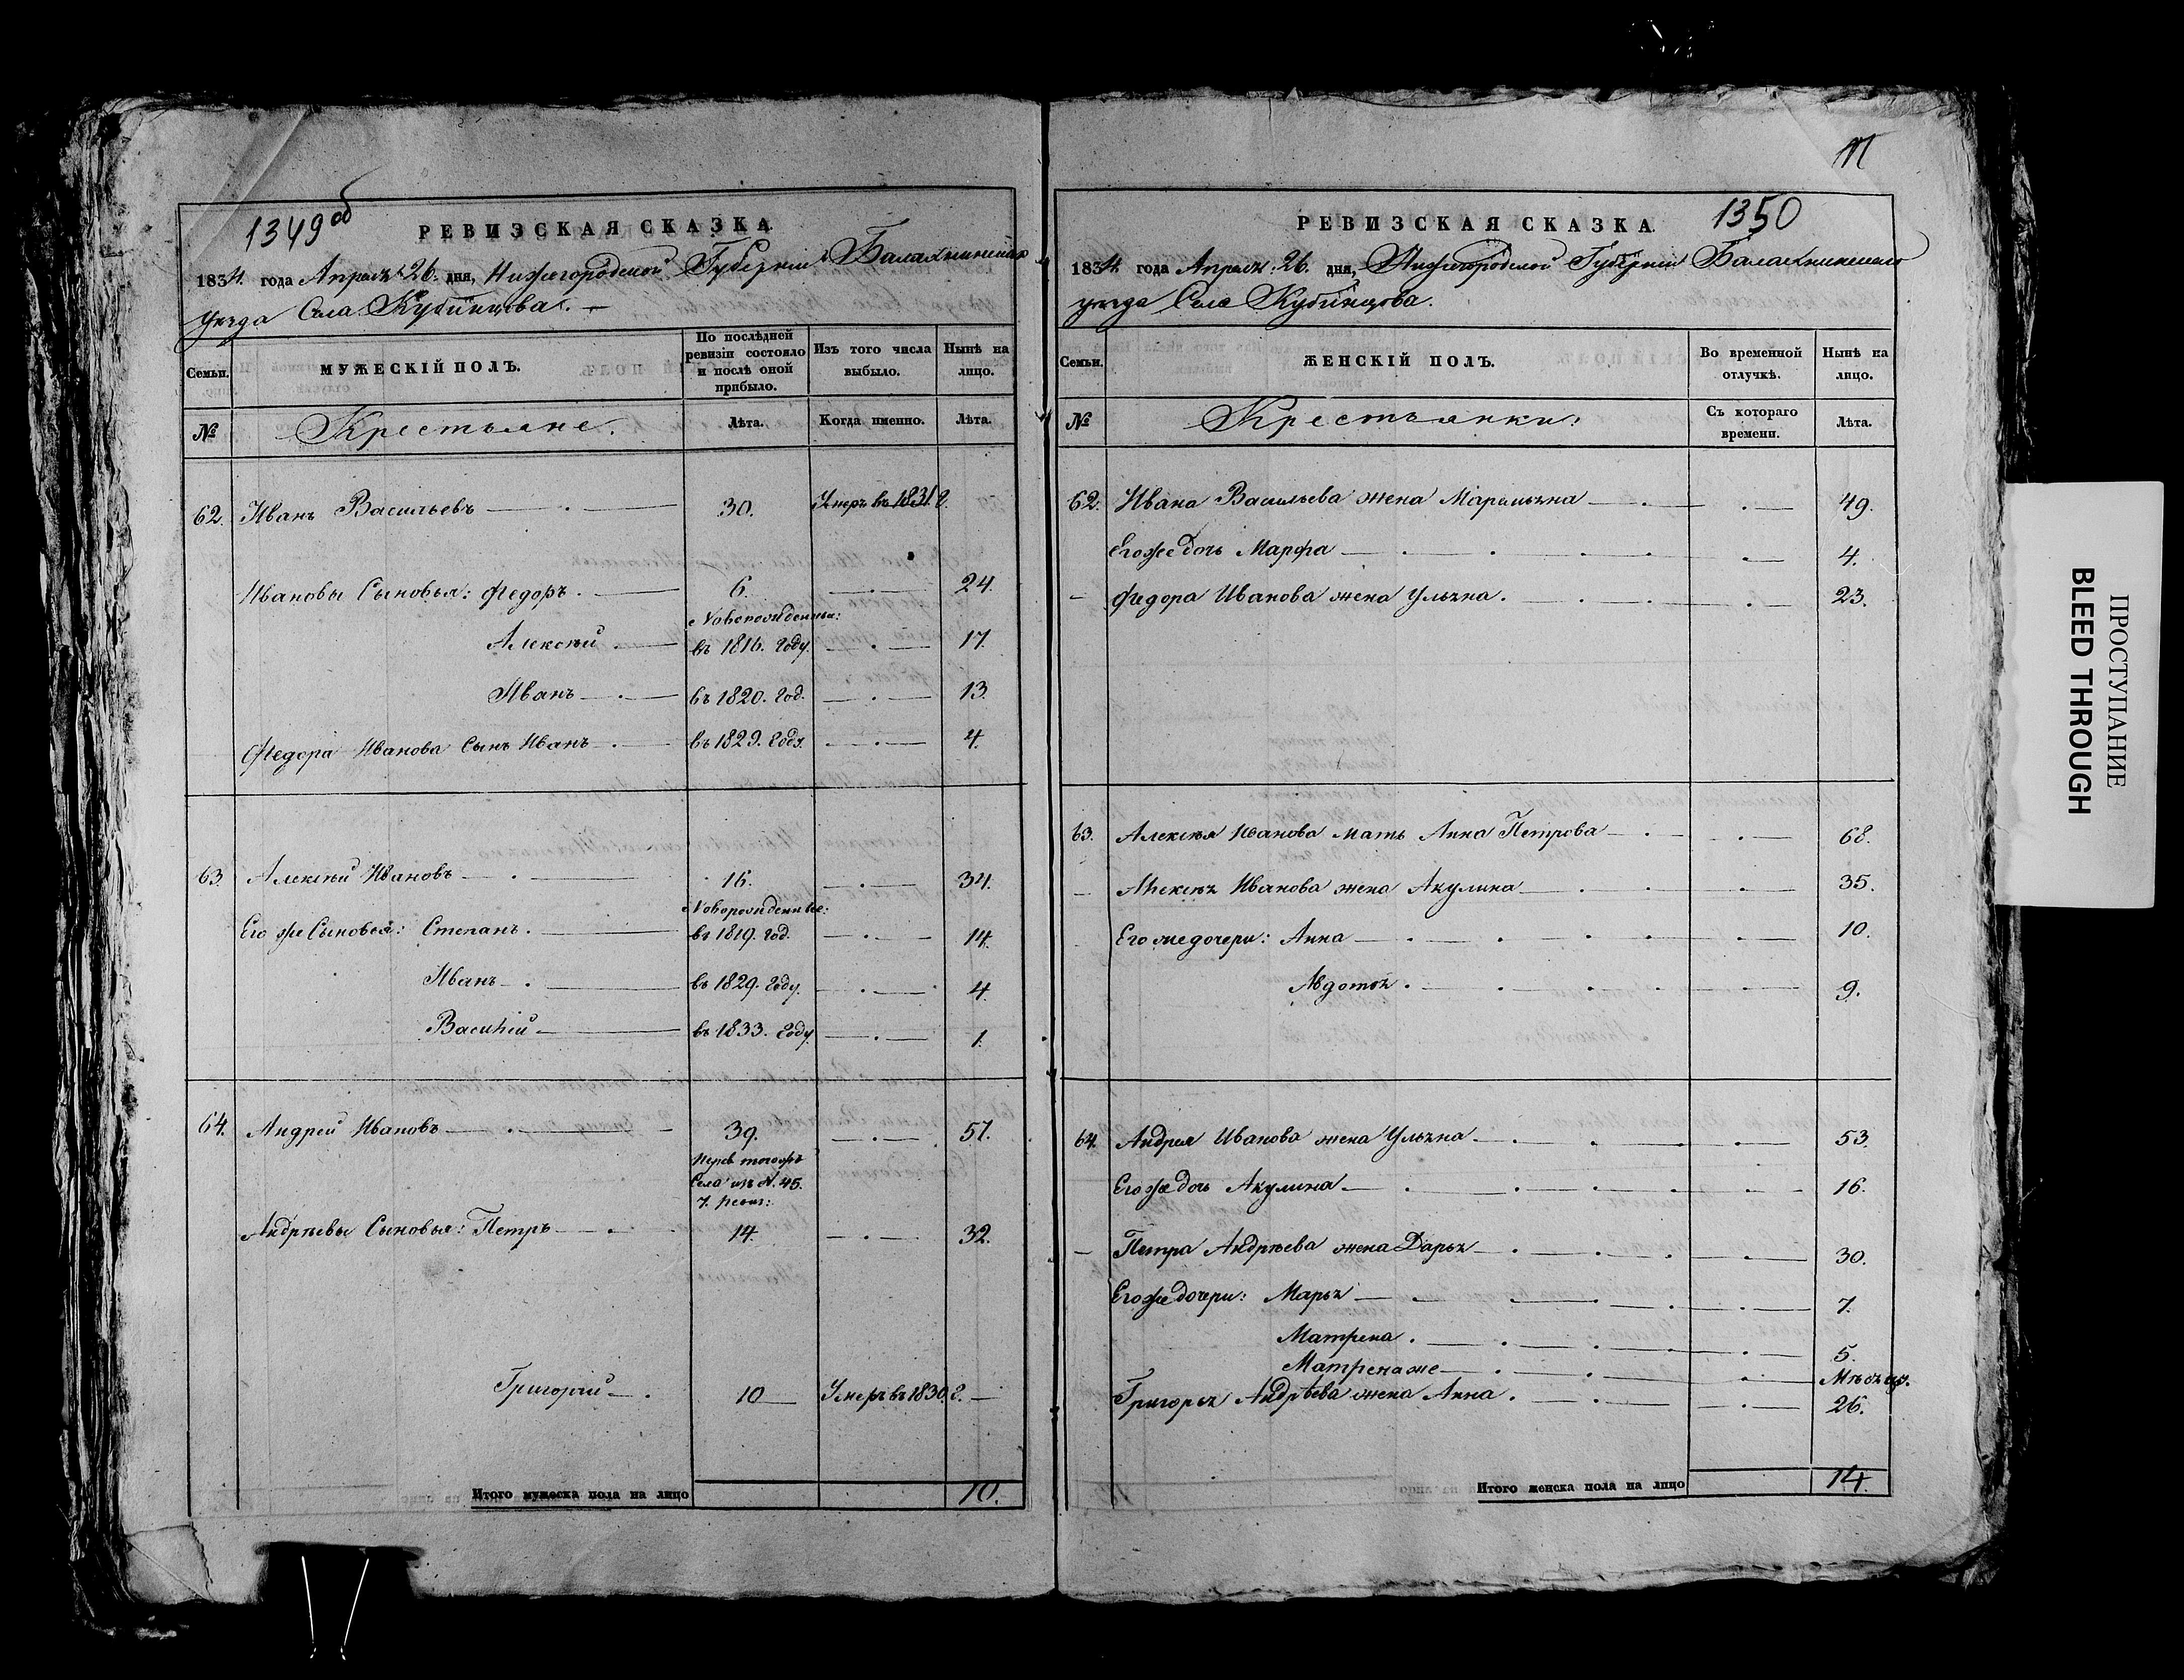 1349 об
РЕВИЗСКАЯ СКАЗКА
1834. года Апреля 26. дня, Нижегородской Губерніи Балахнинскаго
уѣзда Села Кубинцова. –
Семьи.
МУЖЕСКІЙ ПОЛЪ.
По послѣдней ревизіи состояло и послѣ оной прибыло.
Изъ того числа выбыло.
Нынѣ на лицо.
№
Крестьяне.
Лѣта.
Когда именно.
Лѣта.
62. Иванъ Васильевъ 30. Умеръ въ 1831 г.
Ивановы Сыновья: Федоръ. 6. 24.
Новорожденны:
Алексѣй въ 1816. году. 17.
Иванъ въ 1820. год. 13.
Федора Иванова Сынъ Иванъ въ 1829. году. 4.
63. Алексѣй Ивановъ 16. 34.
Новорожденные:
Его же Сыновья: Степанъ. въ 1819. год. 14.
Иванъ въ 1829. году. 4.
Василій въ 1833. году. 1.
64. Андрей Ивановъ 39. 57.
Перев. тогожъ
Села изъ N. 45.
7. ревиз:
Андрѣевы Сыновья: Петръ 14. 32.
Григорій 10 Умеръ въ 1830. г.
Итого мужеска пола на лицо 10.
1350
РЕВИЗСКАЯ СКАЗКА
1834. года Апреля 26. дня, Нижегородской Губерніи Балахнинскаго
уѣзда Села Кубинцова.
Семьи.
ЖЕНСКІЙ ПОЛЪ.
Во временной отлучкѣ.
Нынѣ на лицо.
№
Крестьянки:
Съ котораго времени.
Лѣта.
62. Ивана Васильева жена Маремьяна 49.
Егоже дочь Марфа 4.
Федора Иванова жена Ульяна. 23.
63. Алексѣя Иванова мать Анна Петрова 68.
Алексѣя Иванова жена Акулина 35.
Его же дочери: Анна 10.
Авдотья. 9.
64. Андрея Иванова жена Ульяна. 53.
Егоже дочь Акулина 16.
Петра Андрѣева жена Дарья 30.
Егоже дочери: Марья 7.
Матрена. 5.
Матрена же Мѣсяцъ.
Григорья Андрѣева жена Анна. 26.
Итого женска пола на лицо 14.
ПРОСТУПАНИЕ
BLEED THROUGH